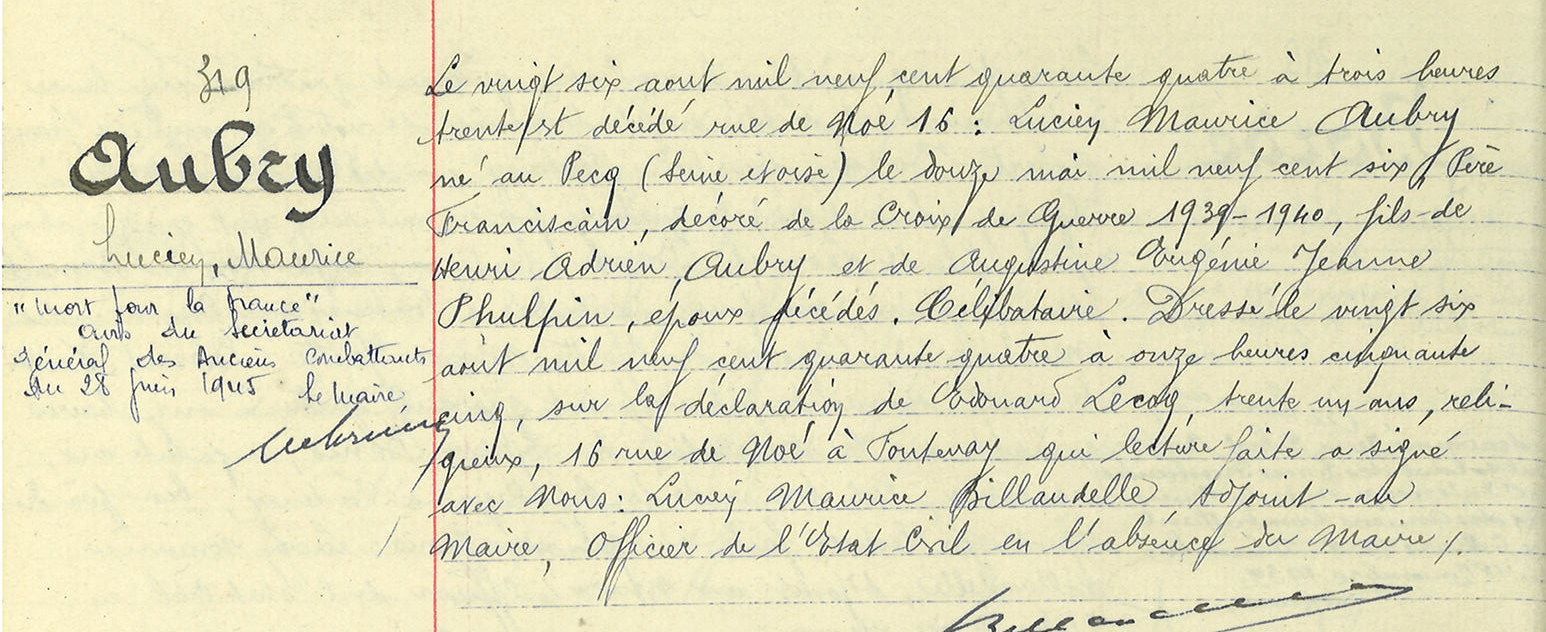 349
Aubry
Lucien, Maurice
"Mort pour la france"
avis du Secrétariat
Général des Anciens Combattants
du 28 juin 1945 Le Maire
Le vingt six aout mil neuf cent quarante quatre à trois heures
trente est décédé rue de Noé 16 : Lucien Maurice Aubry
né au Pecq (Seine et oise) le douze mai mil neuf cent six, Père
Franciscain, décoré de la Croix de Guerre 1939-1940, fils de
Henri Adrien Aubry et de Augustine Eugénie Jeanne
Phulpin, époux décédés. Célibataire. Dressé le vingt six
août mil neuf cent quarante quatre à onze heures cinquante
cinq, sur la déclaration de Edouard Lecoq, trente un ans, reli-
gieux, 16 rue de Noé à Fontenay qui lecture faite a signé
avec Nous : Lucien Maurice Billaudelle, Adjoint au
Maire, Officier de l'Etat Civil en l'absence du Maire /.